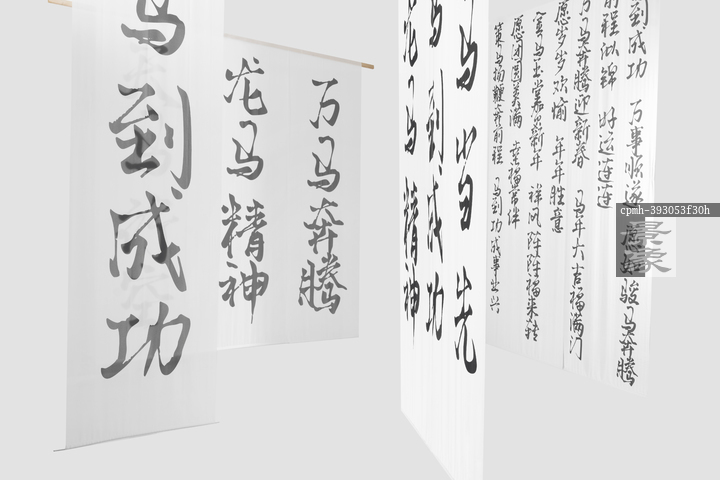 马到成功
万马奔腾
龙马精神
马当先
马到成功
龙马精神
到成功 万事顺遂 骏马奔腾
前程似锦 好运连连
万马奔腾迎新春 马年大吉福满门
愿步步欢愉 年年胜意
金马玉堂 新年 祥风阵阵福来转
愿 圆美满 幸福常伴
策马扬鞭奔前程 马到功成事业兴
cpmh-393053f30h